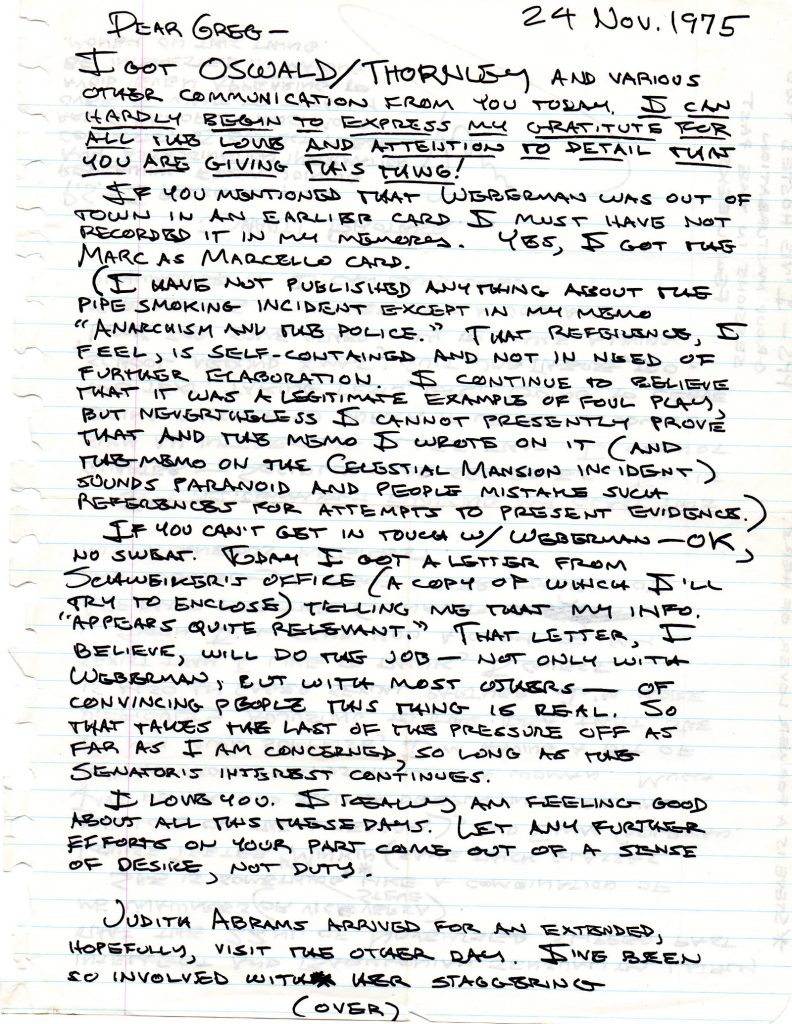 24 Nov. 1975
DEAR GREG—
I GOT OSWALD/THORNLEY AND VARIOUS
OTHER COMMUNICATION FROM YOU TODAY. I CAN
HARDLY BEGIN TO EXPRESS MY GRATITUTE FOR
ALL THE LOVE AND ATTENTION TO DETAIL THAT
YOU ARE GIVING THIS THING!
IF YOU MENTIONED THAT WEBERMAN WAS OUT OF
TOWN IN AN EARLIER CARD I MUST HAVE NOT
RECORDED IT IN MY MEMORY. YES, I GOT THE
MARC AS MARCELLO CARD.
(I HAVE NOT PUBLISHED ANYTHING ABOUT THE
PIPE SMOKING INCIDENT EXCEPT IN MY MEMO
"ANARCHISM AND THE POLICE." THAT REFERENCE, I
FEEL, IS SELF-CONTAINED AND NOT IN NEED OF
FURTHER ELABORATION. I CONTINUE TO BELIEVE
THAT IT WAS A LEGITIMATE EXAMPLE OF FOUL PLAY,
BUT NEVERTHELESS I CANNOT PRESENTLY PROVE
THAT AND THE MEMO I WROTE ON IT (AND
THE MEMO ON THE CELESTIAL MANSION INCIDENT)
SOUNDS PARANOID AND PEOPLE MISTAKE SUCH
REFERENCES FOR ATTEMPTS TO PRESENT EVIDENCE.)
IF YOU CAN'T GET IN TOUCH W/ WEBERMAN—OK,
NO SWEAT. TODAY I GOT A LETTER FROM
SCHWEIKER'S OFFICE (A COPY OF WHICH I'LL
TRY TO ENCLOSE) TELLING ME THAT MY INFO.
"APPEARS QUITE RELEVANT." THAT LETTER, I
BELIEVE, WILL DO THE JOB—NOT ONLY WITH
WEBERMAN, BUT WITH MOST OTHERS — OF
CONVINCING PEOPLE THIS THING IS REAL. SO
THAT TAKES THE LAST OF THE PRESSURE OFF AS
FAR AS I AM CONCERNED, SO LONG AS THE
SENATOR'S INTEREST CONTINUES.
I LOVE YOU. I REALLY AM FEELING GOOD
ABOUT ALL THIS THESE DAYS. LET ANY FURTHER
EFFORTS ON YOUR PART COME OUT OF A SENSE
OF DESIRE, NOT DUTY.
JUDITH ABRAMS ARRIVED FOR AN EXTENDED,
HOPEFULLY, VISIT THE OTHER DAY. I'VE BEEN
SO INVOLVED WITH HER STAGGERING
(OVER)